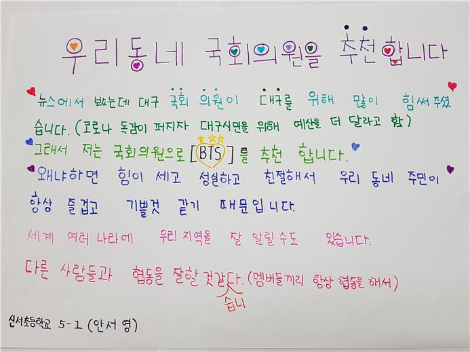 우리동네 국회의원을 추천합니다
뉴스에서 보았는데 대구 국회 의원이 대구를 위해 많이 힘써 주셨
습니다. (코로나 독감이 퍼지자 대구시민을 위해 예산을 더 달라고 함)
그래서 저는 국회의원으로 [BTS]를 추천 합니다.
왜냐하면 힘이 세고 성실하고 친절해서 우리 동네 주민이
항상 즐겁고 기쁠것 같기 때문입니다.
세계 여러 나라에 우리 지역을 잘 알릴 수도 있습니다.
다른 사람들과 협동을 잘할 것같다. (멤버들끼리 항상 협동을 해서)
습니
신서초등학교 5-1 (안서영)